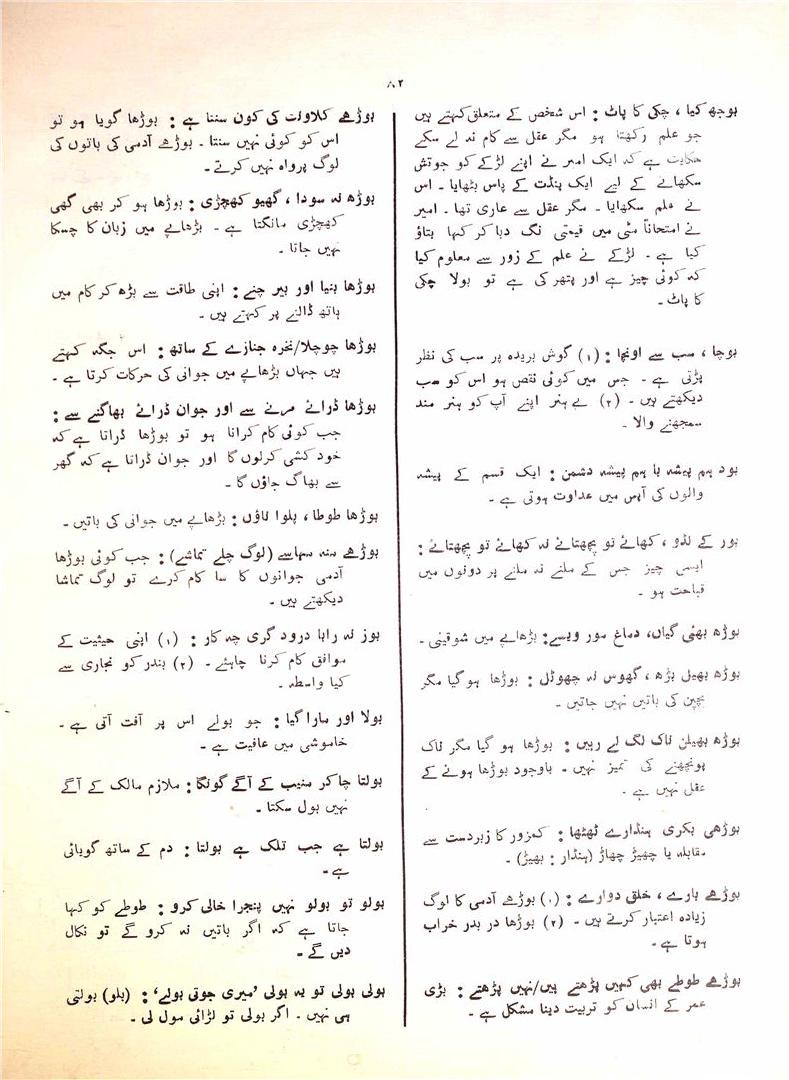 ۸۲
بوجھ کیا ، چکی کا پاٹ : اس شخص کے متعلق کہتے ہیں
جو علم رکھتا ہو مگر عقل سے کام نہ لے سکے
حکایت ہے کہ ایک امیر نے اپنے لڑکے کو جوتش
سکھانے کے لیے ایک پنڈت کے پاس بٹھایا ۔ اس
نے علم سکھایا ۔ مگر عقل سے عاری تھا ۔ امیر
نے امتحاناً مٹی میں قیمتی نگ دبا کر کہا بتاؤ
کیا ہے ۔ لڑکے نے علم کے زور سے معلوم کیا
کہ کوئی چیز ہے اور پتھر کی ہے تو بولا چکی
کا پاٹ ۔
بوچا ، سب سے اونچا : (۱) گوش بریدہ پر سب کی نظر
پڑتی ہے ۔ جس میں کوئی نقص ہو اس کو سب
دیکھتے ہیں ۔ (۲) بے ہنر اپنے آپ کو ہنر مند
سمجھنے والا ۔
بود ہم پیشہ با ہم پیشہ دشمن : ایک قسم کے پیشہ
والوں کی آپس میں عداوت ہوتی ہے ۔
بور کے لڈو ، کھائے تو پچھتائے نہ کھائے تو پچھتائے :
ایسی چیز جس کے ملنے نہ ملنے پر دونوں میں
قباحت ہو ۔
بوڑھ بھئی گیاں، دماغ مور ویسے : بڑھاپے میں شوقینی ۔
بوڑھ بھیل بڑھ ، گھوس نہ چھوٹل : بوڑھا ہو گیا مگر
بچپن کی باتیں نہیں جاتیں ۔
بوڑھ بھیلن ناک لگ لے رہیں : بوڑھا ہو گیا مگر ناک
پونچھنے کی تمیز نہیں ۔ باوجود بوڑھا ہونے کے
عقل نہیں ہے ۔
بوڑھی بکری ہنڈارے ٹھٹھا : کمزور کا زبردست سے
مقابلہ یا چھیڑ چھاڑ (ہنڈار : بھیڑ) ۔
بوڑھے بارے ، خلق دوارے : (۱) بوڑھے آدمی کا لوگ
زیادہ اعتبار کرتے ہیں ۔ (۲) بوڑھا در بدر خراب
ہوتا ہے ۔
بوڑھے طوطے بھی کہیں پڑھتے ہیں/نہیں پڑھتے : بڑی
عمر کے انسان کو تربیت دینا مشکل ہے ۔
بوڑھے کلاونت کی کون سنتا ہے : بوڑھا گویا ہو تو
اس کو کوئی نہیں سنتا ۔ بوڑھے آدمی کی باتوں کی
لوگ پرواہ نہیں کرتے ۔
بوڑھ نہ سودا ، گھیو کھچڑی : بوڑھا ہو کر بھی گھی
کھچڑی مانگتا ہے ۔ بڑھاپے میں زبان کا چسکا
نہیں جاتا ۔
بوڑھا بنیا اور بیر چنے : اپنی طاقت سے بڑھ کر کام میں
ہاتھ ڈالنے پر کہتے ہیں ۔
بوڑھا چوچلا/نخرہ جنازے کے ساتھ : اس جگہ کہتے
ہیں جہاں بڑھاپے میں جوانی کی حرکات کرتا ہے ۔
بوڑھا ڈرائے مرنے سے اور جوان ڈرائے بھاگنے سے :
جب کوئی کام کرانا ہو تو بوڑھا ڈراتا ہے کہ
خود کشی کرلوں گا اور جوان ڈراتا ہے کہ گھر
سے بھاگ جاؤں گا ۔
بوڑھا طوطا ، پلوا ناؤں : بڑھاپے میں جوانی کی باتیں ۔
بوڑھے منہ مہاسے (لوگ چلے تماشے) : جب کوئی بوڑھا
آدمی جوانوں کا سا کام کرے تو لوگ تماشا
دیکھتے ہیں ۔
بوز نہ رابا درود گری چہ کار : (۱) اپنی حیثیت کے
موافق کام کرنا چاہئے ۔ (۲) بندر کو نجاری سے
کیا واسطہ ۔
بولا اور مارا گیا : جو بولے اس پر آفت آتی ہے ۔
خاموشی میں عافیت ہے ۔
بولتا چاکر منیب کے آگے گونگا : ملازم مالک کے آگے
نہیں بول سکتا ۔
بولتا ہے جب تلک ہے بولتا : دم کے ساتھ گویائی
ہے ۔
بولو تو بولو نہیں پنجرا خالی کرو : طوطے کو کہا
جاتا ہے کہ اگر باتیں نہ کرو گے تو نکال
دیں گے ۔
بولی بولی تو یہ بولی ’میری جوتی بولے‘ : (بلو) بولتی
ہی نہیں ۔ اگر بولی تو لڑائی مول لی ۔